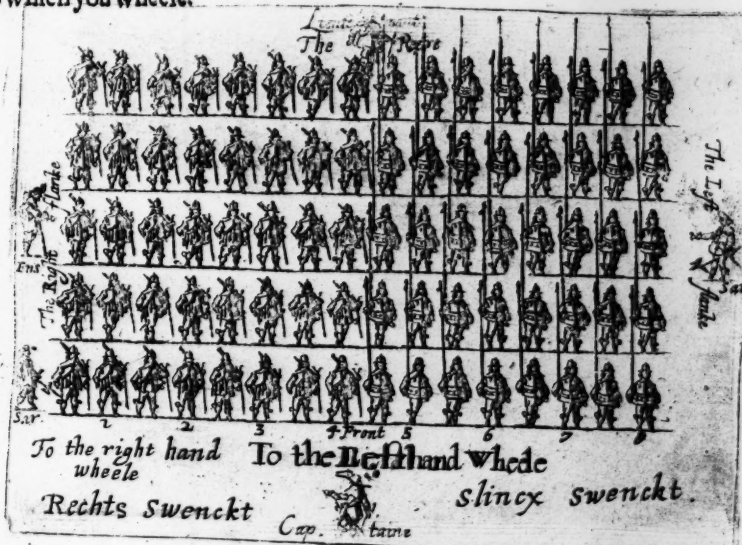 which you wheele.
Lieutenant
The Rere
The Right flanke
The Left flanke
Ens
Sar.
1 2 3 4 Front 5 6 7 8
To the right hand
wheele
To the left hand whede
Rechts Swenckt
Slincx Swenckt.
Cap. taine